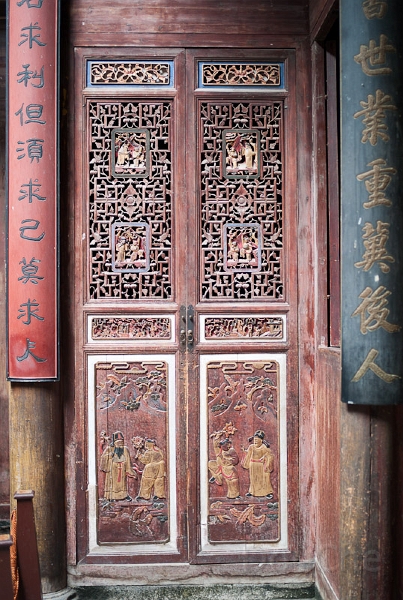 世業重冀後人
名求利但須求己莫求人